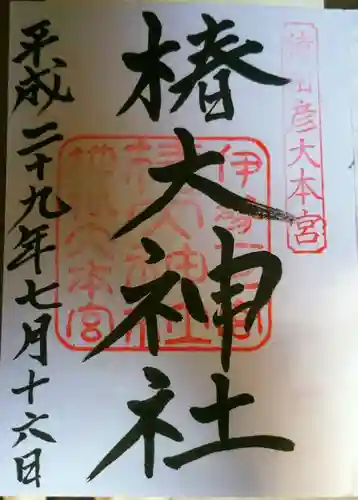 猿田彦大本宮
椿大神社
伊勢一の宮
椿大神社
猿田彦大本宮
平成二十九年七月十六日